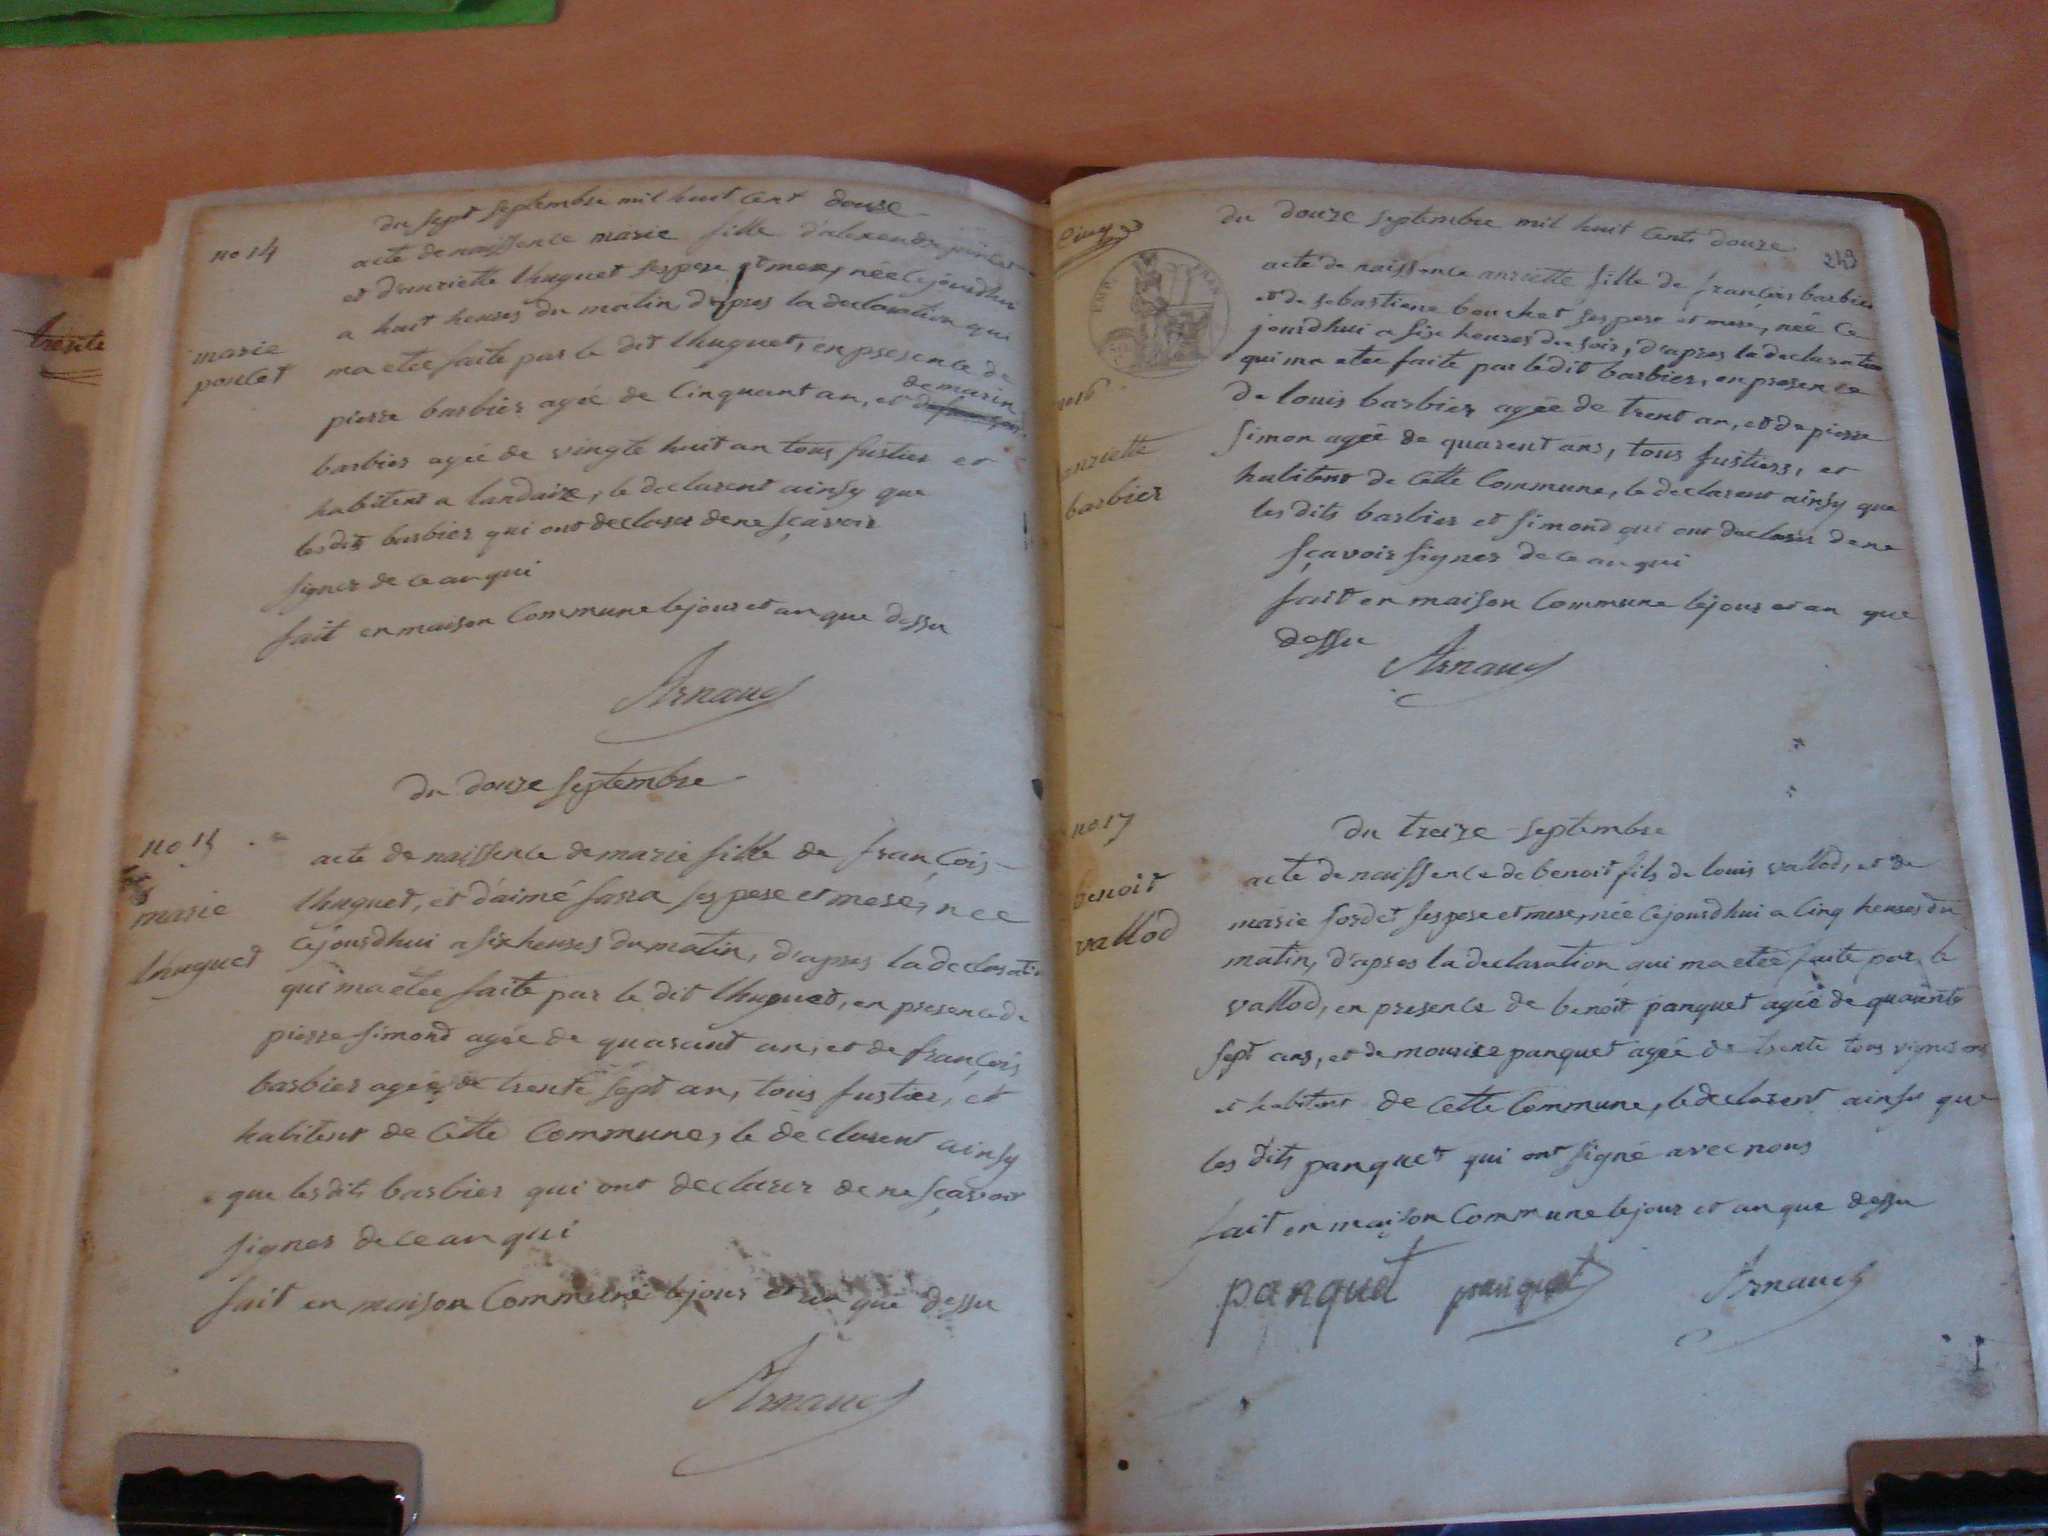 trente
du sept septembre mil huit cent douze
no 14
acte de naissence marie fille d'alexendre
et d'anriette lhuguet ses pere et mere, née cejourdhui
a huit heures du matin d'apres la declaration qui
marie
poncet
ma etee faite par le dit lhuguet, en presence de
pierre barbier agée de Cinquant an, et
de marin
barbier agée de vingte huit an tous fustier et
habitent a landaize, le declarent ainsy que
les dits barbier qui ont declarer de ne sçavoir
signer de ce anqui
fait en maison Commune lejour et an que dessu
Arnaud
du douze septembre
no 15
acte de naissence de marie fille de françois
marie
lhuguet
lhuguet, et d'aimé sarra ses pere et mere, nee
cejourdhui a six heures du matin, d'apres la declaration
qui ma etee faite par le dit lhuguet, en presence de
pierre simond agée de quarant an, et de françois
barbier agée de trente sept an, tous fustier, et
habitent de Cette Commune, le declarent ainsy
que les dits barbier qui ont declarer de ne sçavoir
signer de ce anqui
fait en maison Commune lejour et an que dessu
Arnaud
Cinq
243
du douze septembre mil huit Cents douze
EMP. FRAN.
acte de naissence anriette fille de françois barbier
et de sebastiene bouchet ses pere et mere, née Ce
jourdhui a sixe heures du soir, d'apres la declaration
qui ma etee faite par le dit barbier, en presence
no 16
anriette
barbier
de louis barbier agée de trent an, et de pierre
simon agée de quarent ans, tous fustiers, et
habitent de Cette Commune, le declarent ainsy que
les dits barbier et simond qui ont declarer de ne
sçavoir signer de ce anqui
fait en maison Commune lejour et an que
dessu
Arnaud
no 17
du treize septembre
benoit
vallod
acte de naissence de benoit fils de louis vallod, et de
marie sordet ses pere et mere, née cejourdhui a Cinq heures du
matin, d'apres la declaration qui ma etee faite par le
vallod, en presence de benoit panquet agée de quarente
sept ans, et de mourice panquet agée de trente tous vignerons
et habitent de Cette Commune, le declarent ainsy que
les dits panquet qui ont signé avec nous
fait en maison Commune lejour et an que dessu
panquet panquet Arnaud